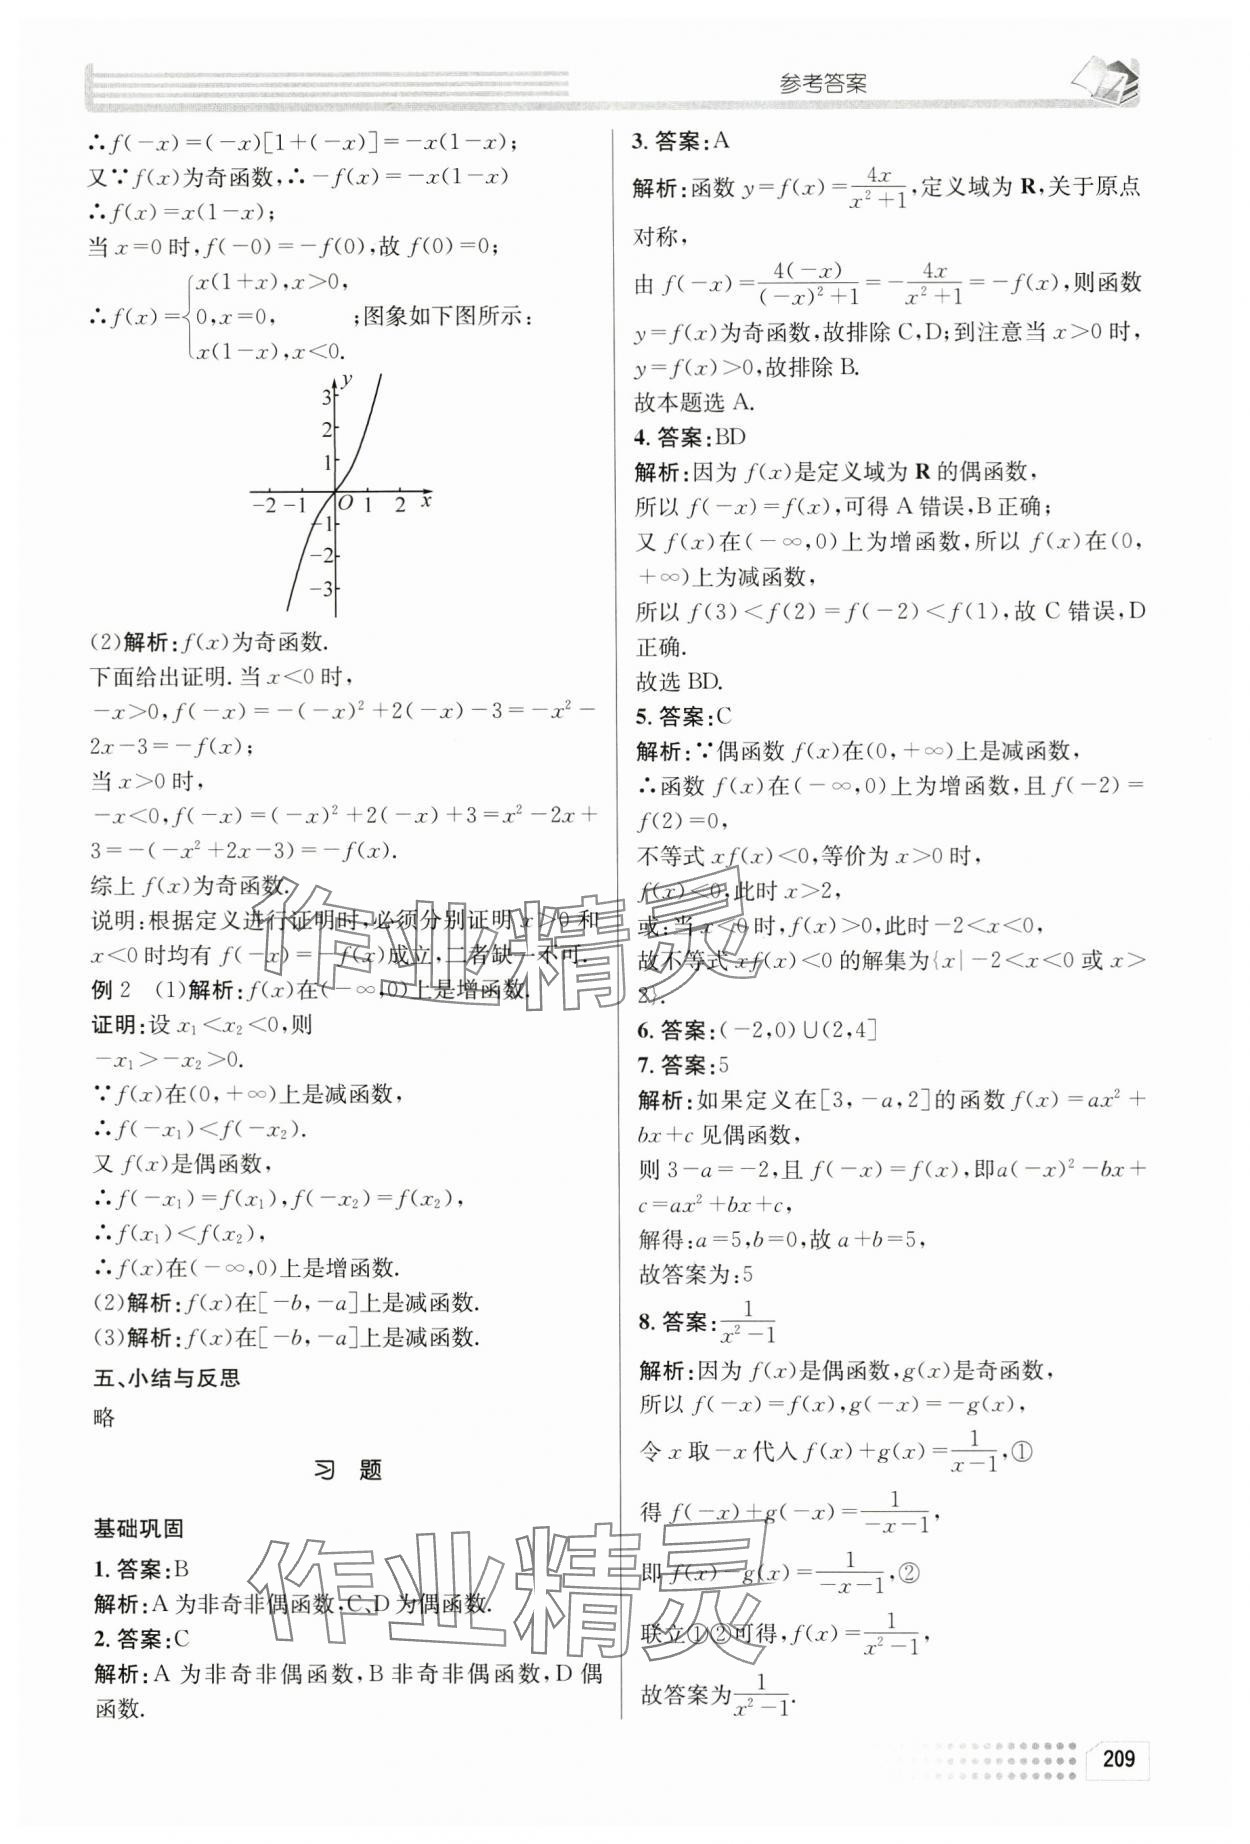 参考答案
∴f(-x)=(-x)[1+(-x)]=-x(1-x);
又∵f(x)为奇函数,∴-f(x)=-x(1-x)
∴f(x)=x(1-x);
当x=0时,f(-0)=-f(0),故f(0)=0;
∴f(x)={x(1+x),x>0,
0,x=0, ;图象如下图所示:
x(1-x),x<0.
y
3
2
1
-2 -1 O 1 2 x
-1
-2
-3
(2)解析:f(x)为奇函数.
下面给出证明.当x<0时,
-x>0,f(-x)=-(-x)²+2(-x)-3=-x²-
2x-3=-f(x);
当x>0时,
-x<0,f(-x)=(-x)²+2(-x)+3=x²-2x+
3=-(-x²+2x-3)=-f(x).
综上f(x)为奇函数.
说明:根据定义进行证明时,必须分别证明x>0和
x<0时均有f(-x)=-f(x)成立,二者缺一不可.
例2 (1)解析:f(x)在(-∞,0)上是增函数.
证明:设x₁<x₂<0,则
-x₁>-x₂>0.
∵f(x)在(0,+∞)上是减函数,
∴f(-x₁)<f(-x₂).
又f(x)是偶函数,
∴f(-x₁)=f(x₁),f(-x₂)=f(x₂),
∴f(x₁)<f(x₂),
∴f(x)在(-∞,0)上是增函数.
(2)解析:f(x)在[-b,-a]上是减函数.
(3)解析:f(x)在[-b,-a]上是减函数.
五、小结与反思
略
习 题
基础巩固
1.答案:B
解析:A为非奇非偶函数,C、D为偶函数.
2.答案:C
解析:A为非奇非偶函数,B非奇非偶函数,D偶
函数.
3.答案:A
解析:函数y=f(x)=4x/(x²+1),定义域为R,关于原点
对称,
由f(-x)=4(-x)/((-x)²+1)=-4x/(x²+1)=-f(x),则函数
y=f(x)为奇函数,故排除C,D;到注意当x>0时,
y=f(x)>0,故排除B.
故本题选A.
4.答案:BD
解析:因为f(x)是定义域为R的偶函数,
所以f(-x)=f(x),可得A错误,B正确;
又f(x)在(-∞,0)上为增函数,所以f(x)在(0,
+∞)上为减函数,
所以f(3)<f(2)=f(-2)<f(1),故C错误,D
正确.
故选BD.
5.答案:C
解析:∵偶函数f(x)在(0,+∞)上是减函数,
∴函数f(x)在(-∞,0)上为增函数,且f(-2)=
f(2)=0,
不等式xf(x)<0,等价为x>0时,
f(x)<0,此时x>2,
或:当x<0时,f(x)>0,此时-2<x<0,
故不等式xf(x)<0的解集为{x|-2<x<0或x>
2}.
6.答案:(-2,0)∪(2,4]
7.答案:5
解析:如果定义在[3,-a,2]的函数f(x)=ax²+
bx+c见偶函数,
则3-a=-2,且f(-x)=f(x),即a(-x)²-bx+
c=ax²+bx+c,
解得:a=5,b=0,故a+b=5,
故答案为:5
8.答案:1/(x²-1)
解析:因为f(x)是偶函数,g(x)是奇函数,
所以f(-x)=f(x),g(-x)=-g(x),
令x取-x代入f(x)+g(x)=1/(x-1),①
得f(-x)+g(-x)=1/(-x-1),
即f(x)-g(x)=1/(-x-1),②
联立①②可得,f(x)=1/(x²-1),
故答案为1/(x²-1).
作业精灵
作业精灵
209